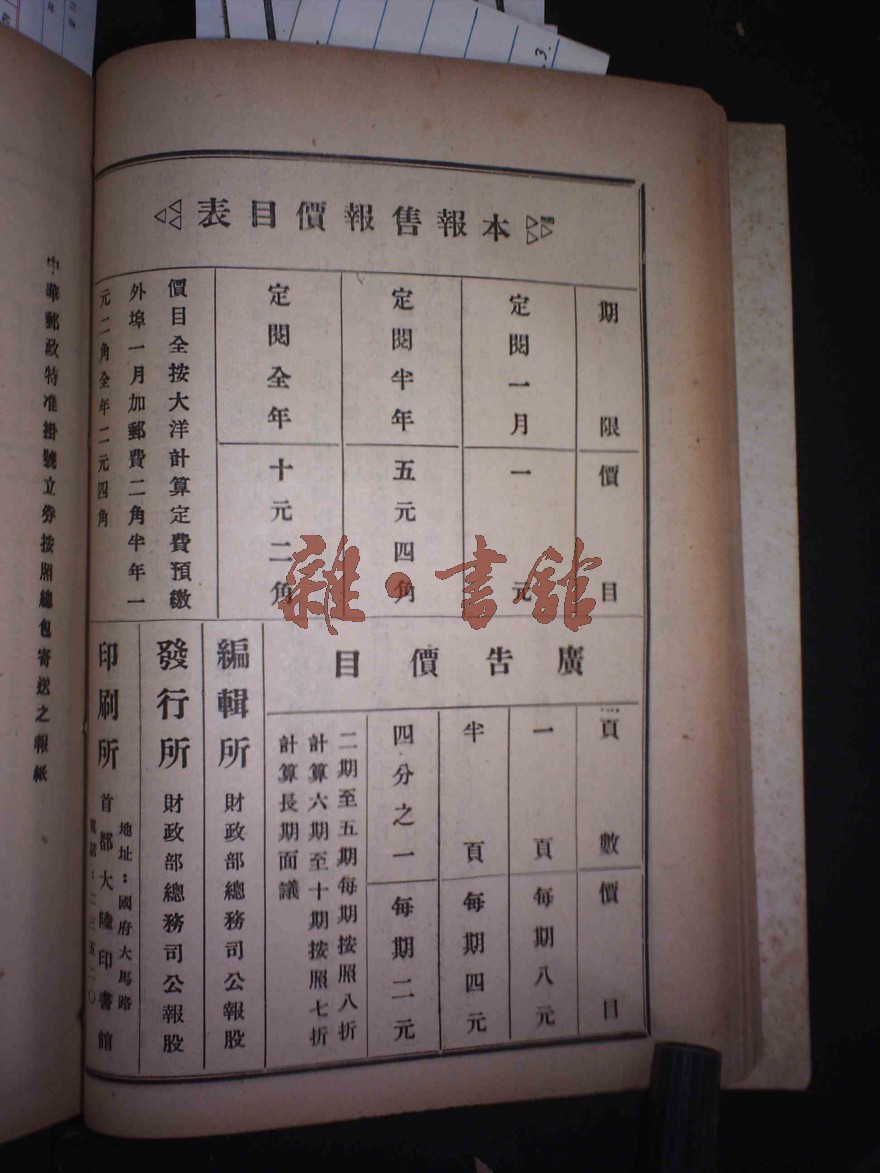 本報售報價目表
期限 價目
定閱一月 一元
定閱半年 五元四角
定閱全年 十元二角
價目全按大洋計算定費預繳
外埠一月加郵費二角半年一
元二角全年二元四角
廣告價目
頁數 價目
一頁 每期八元
半頁 每期四元
四分之一 每期二元
二期至五期每期按照八折
計算六期至十期按照七折
計算長期面議
編輯所 財政部總務司公報股
發行所 財政部總務司公報股
印刷所 首都大陸印書館
地址：國府大馬路
中華郵政特准掛號立券按照總包寄送之報紙
雜·書館